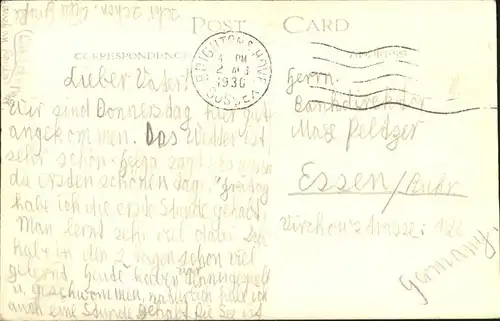 POST CARD
CORRESPONDENCE
BRIGHTON & HOVE
PM
1936
SUSSEX
Lieber Vater!
Wir sind Donnersdag hier gut
angekommen. Das Wetter ist
sehr schön. Helga sagt: Es waren
die ersten schönen Tage. Freitag
habe ich die erste Stunde gehabt.
Man lernt sehr viel dabei. Ich
habe in den 2 Tagen schon viel
gelernt. Heute haben wir Tennis gespielt
u. geschwommen, natürlich habe ich
auch eine Stunde gehabt. Die See ist
sehr schön. Viele Grüße
Herrn.
Bankdirektor
Max Peltzer
Essen/Ruhr
Virchowstrasse: 122
Germany.